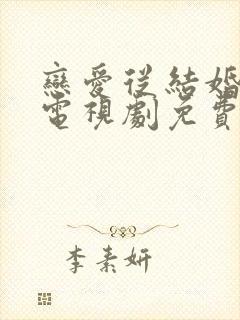 戀愛從結婚
電視劇免費
李素妍